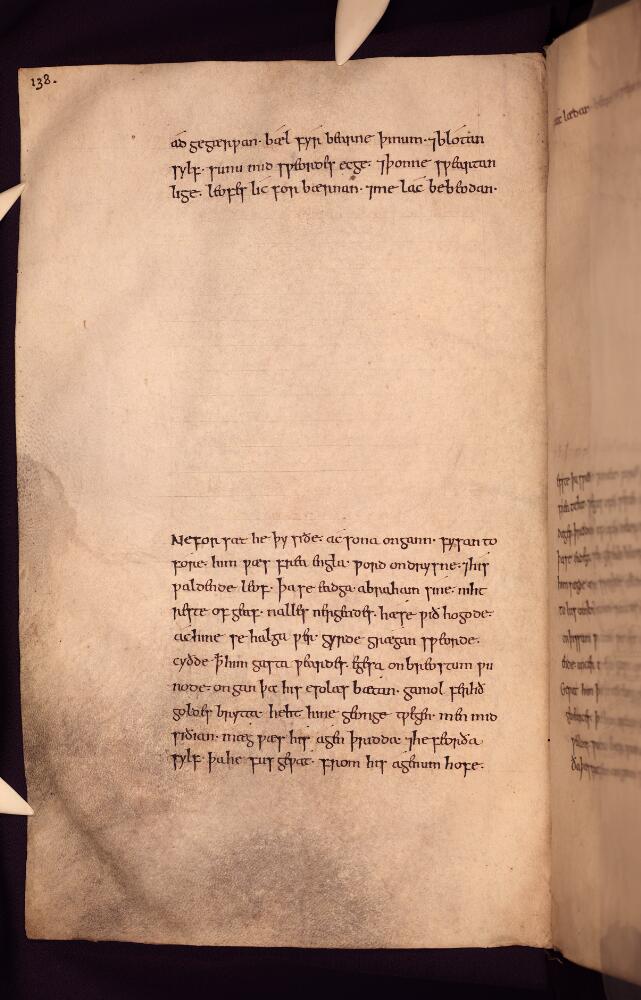 138.
ad gegærƿan· bæl fyr bearne þinum· ⁊blotan
sylf· sunu mid sƿeordes ecge· ⁊þonne sƿeartan
lige· leofes lic for bærnan· ⁊me lác bebeodan·
NEFOR sæt he þy siðe· ac sona ongann· fysan to
fore· him ƿæs frean engla· ƿord ondrysne· ⁊his
ƿaldende leof· þa se eadga abraham sine· niht
reste of geaf· nalles nergendes· hæse ƿið hogode·
ac hine se halga ƿer· gyrde grægan sƿeorde·
cyðde ꝥ him gasta ƿeardes· egesa on breostum ƿu
node· ongan þa his esolas bætan· gamol ferhð
goldes brytta· heht hine geonge tƿegen· men mid
siðian· mæg ƿæs his agen þridda· ⁊he feorða
sylf· þa he fus geƿat· from his agenum hofe·